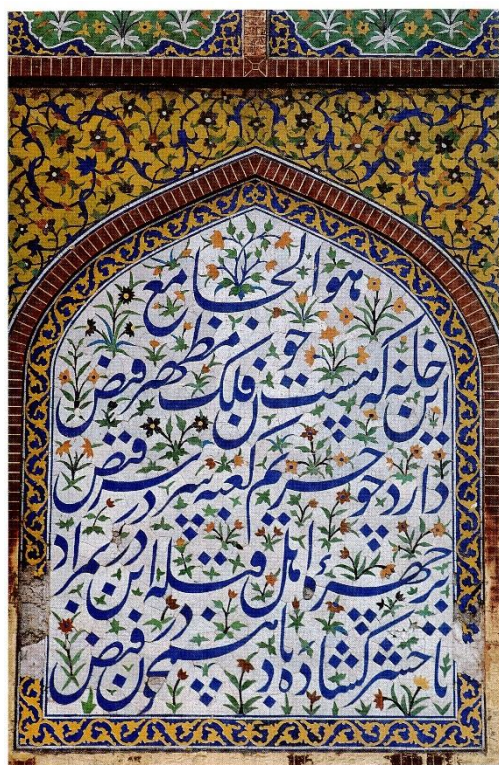 هو الجامع
این خانه که هست چون فلک مظهر فیض
دارد چو حریم کعبه سر در سر فیض
بر چهرهٔ اهل قبله این در بمراد
تا حشر کشاده باد همچون در فیض